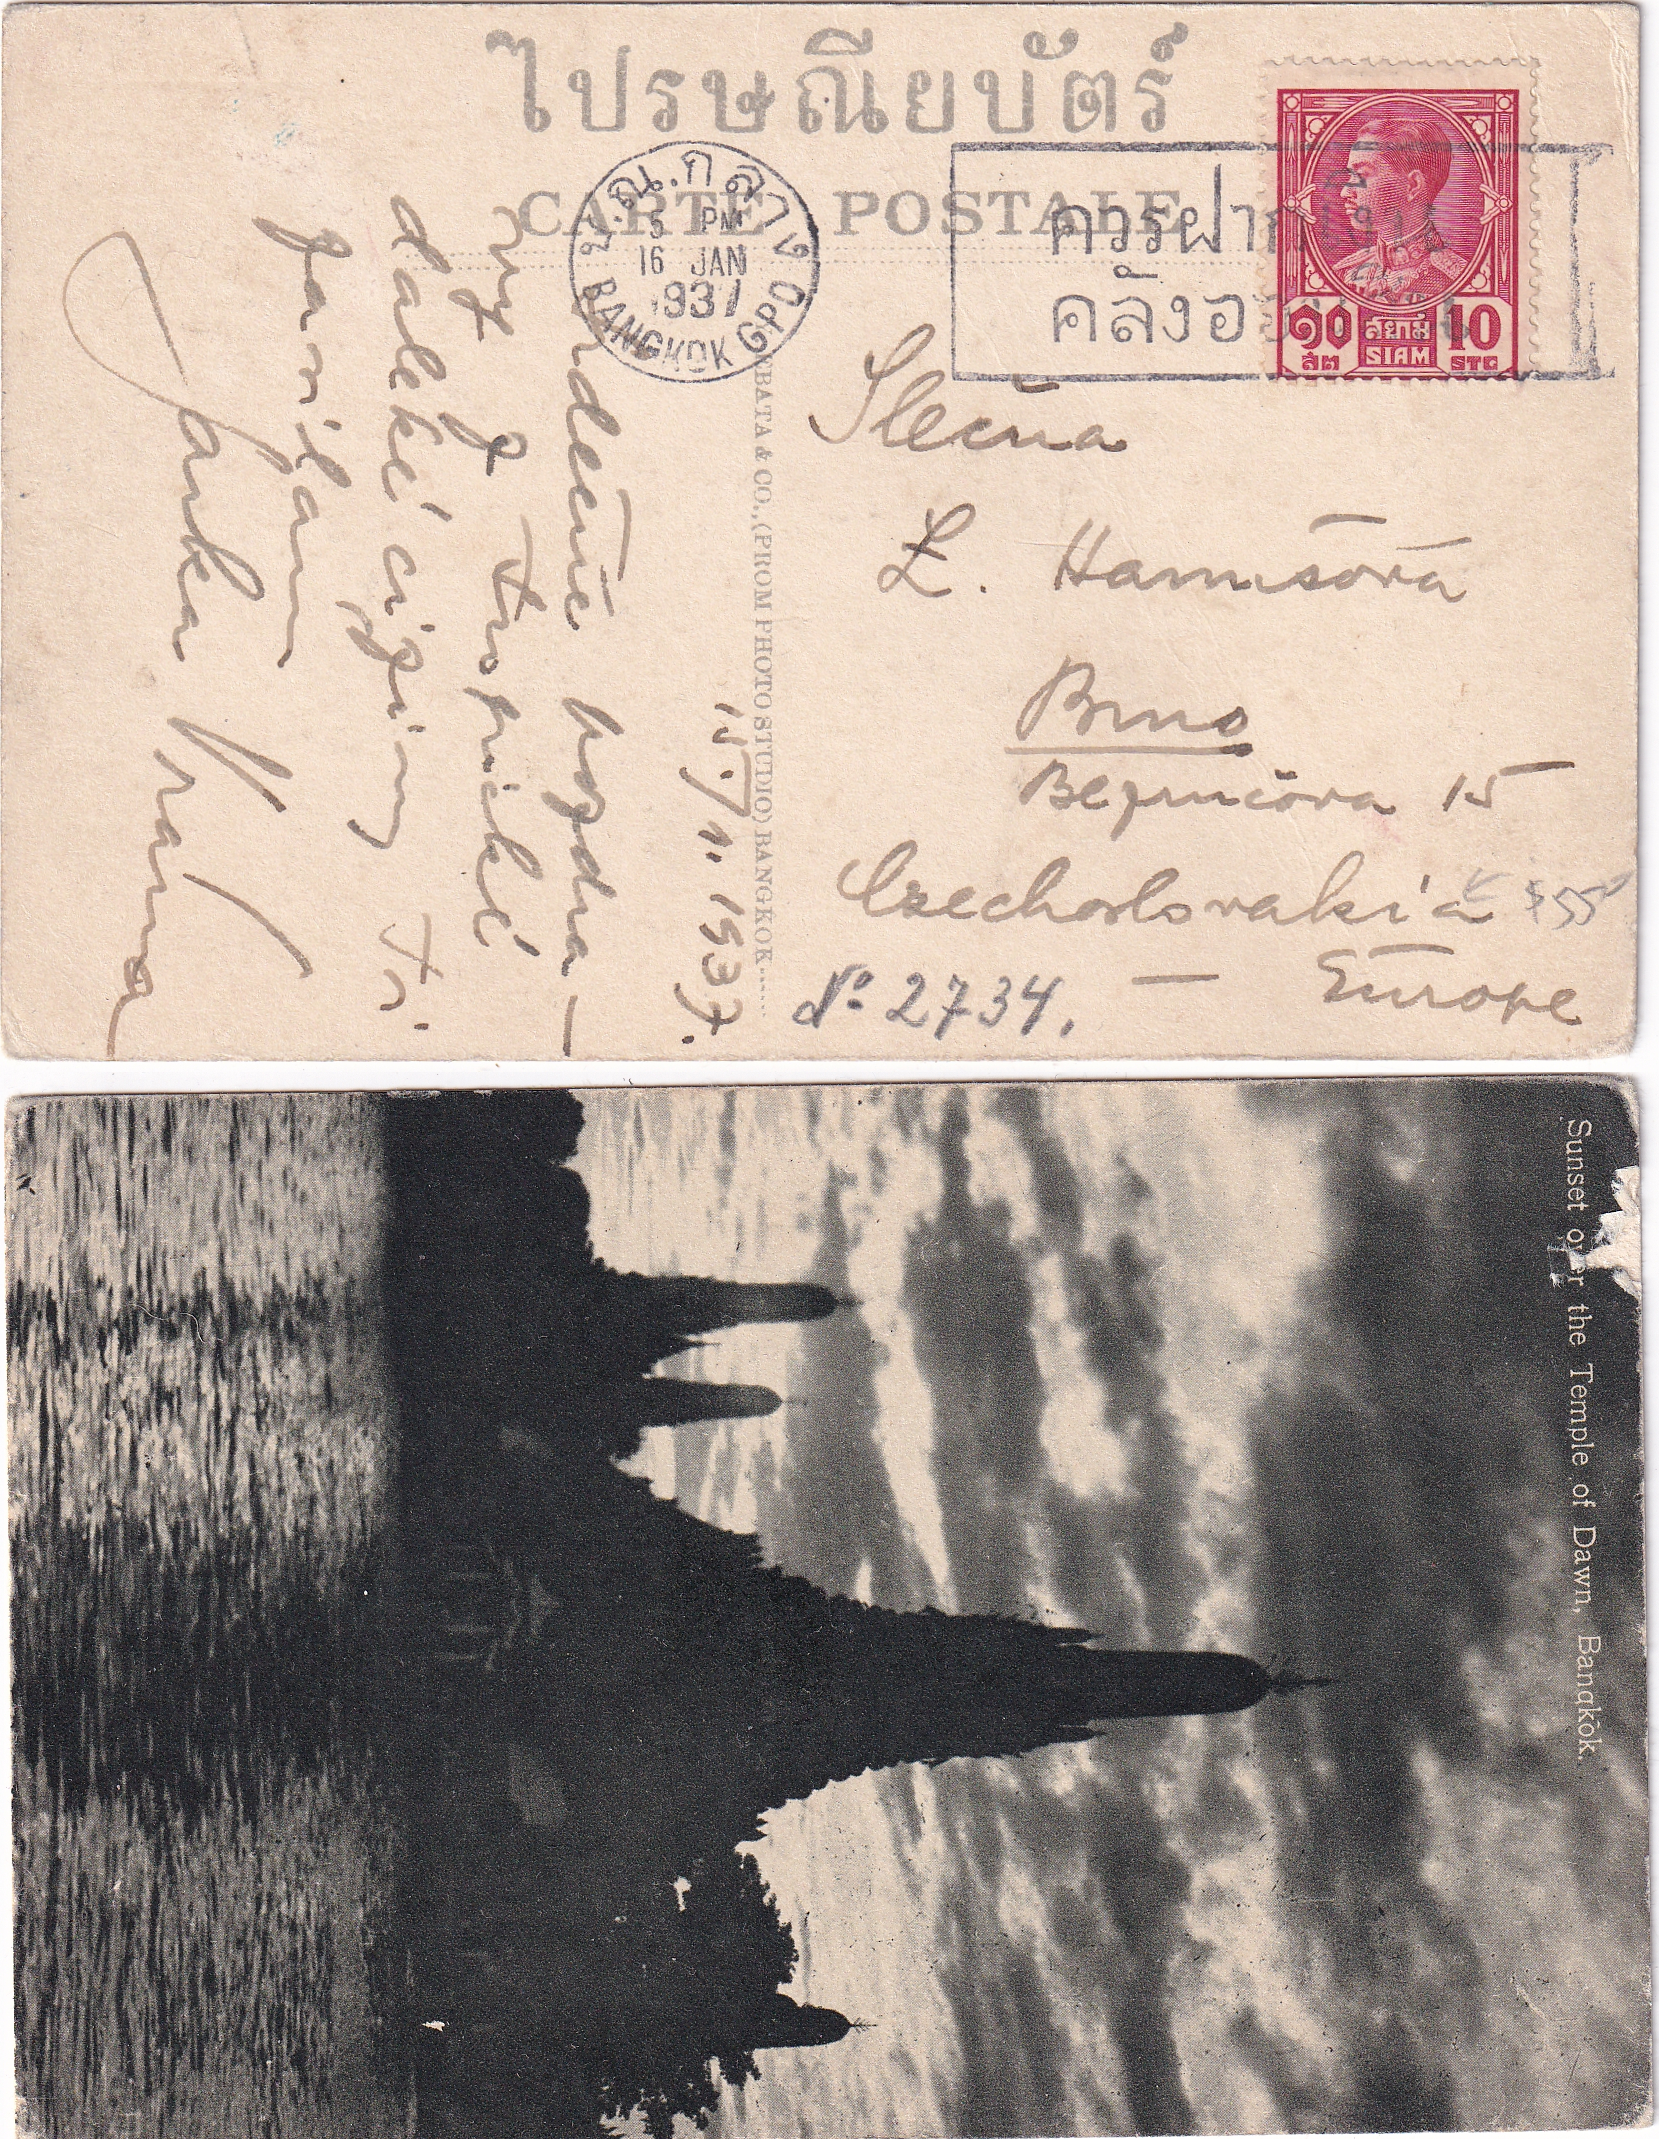 ไปรษณียบัตร์
CARTE POSTALE
ป.ณ.กลาง
5 PM
16 JAN
1937
BANGKOK GPO
ควรฝากเงิน
คลังออมสิน
๑๐ สยาม 10
สต SIAM STG
Slečna
L. Hanusová
Brno
Bezručova 15
Czechoslovakia
Europe
№ 2734.
& CO., (PROM PHOTO STUDIO) BANGKOK.
15/1. 1937.
Srdečné pozdra-
vy z tropické
daleké ciziny
Janka Vrána
Sunset over the Temple of Dawn, Bangkōk.